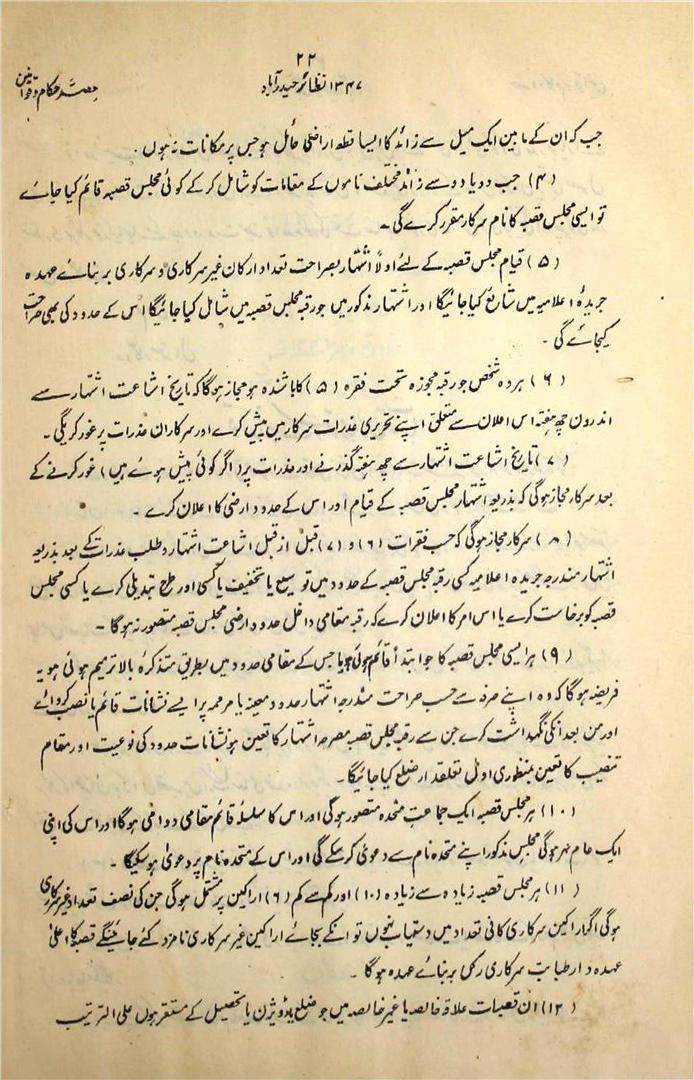 ۲۲
۱۳۴۷ نظائر حیدرآباد
حصہ احکام و قوانین
جب کہ ان کے مابین ایک میل سے زائد کا ایسا قطعہ اراضی حائل ہو جس پر مکانات نہ ہوں۔
(۴) جب دو یا دو سے زائد مختلف ناموں کے مقامات کو شامل کرکے کوئی مجلس قصبہ قائم کیا جائے
تو ایسی مجلس قصبہ کا نام سرکار مقرر کرے گی۔
(۵) قیام مجلس قصبہ کے لئے اولاً اشتہار بصراحت تعداد ارکان غیر سرکاری و سرکاری بر بنائے عہدہ
جریدۂ اعلامیہ میں شایع کیا جائیگا اور اشتہار مذکور میں جو رقبہ مجلس قصبہ میں شامل کیا جائیگا اس کے حدود کی بھی صراحت
کیجائے گی۔
(۶) ہر وہ شخص جو رقبہ مجوزہ تحت فقرہ (۵) کا باشندہ ہو مجاز ہوگا کہ تاریخ اشاعت اشتہار سے
اندرون چھ ہفتہ اس اعلان سے متعلق اپنے تحریری عذرات سرکار میں پیش کرے اور سرکار ان عذرات پر غور کریگی۔
(۷) تاریخ اشاعت اشتہار سے چھ ہفتہ گذرنے اور عذرات پر (اگر کوئی پیش ہوئے ہیں) غور کرنے کے
بعد سرکار مجاز ہوگی کہ بذریعہ اشتہار مجلس قصبہ کے قیام اور اس کے حدود ارضی کا اعلان کرے۔
(۸) سرکار مجاز ہوگی کہ حسب فقرات (۶) و (۷) قبل از قبل اشاعت اشتہار و طلب عذرات کے بعد بذریعہ
اشتہار مندرجہ جریدہ اعلامیہ کسی رقبہ مجلس قصبہ کے حدود میں توسیع یا تخفیف یا کسی اور طرح تبدیلی کرے یا کسی مجلس
قصبہ کو برخاست کرے یا اس امر کا اعلان کرے کہ رقبہ مقامی داخل حدود ارضی مجلس قصبہ متصور نہ ہوگا۔
(۹) ہر ایسی مجلس قصبہ کا جو ابتداً قائم ہوئی ہو یا جس کے مقامی حدود میں بطریق متذکرہ بالا ترمیم ہوئی ہو یہ
فریضہ ہوگا کہ وہ اپنے صرفہ سے حسب صراحت مندرجہ اشتہار حدود معینہ یا مرممہ پر ایسے نشانات قائم یا نصب کروائے
اور من بعد انکی نگہداشت کرے جن سے رقبہ مجلس قصبہ مصرحہ اشتہار کا تعین ہو نشانات حدود کی نوعیت اور مقام
تنصیب کا تعین بمنظوری اول تعلقدار ضلع کیا جائیگا۔
(۱۰) ہر مجلس قصبہ ایک جماعت متحدہ متصور ہوگی اور اس کا سلسلہ قائم مقامی دوامی ہوگا اور اس کی اپنی
ایک عام مہر ہوگی مجلس مذکور اپنے متحدہ نام سے دعویٰ کرسکے گی اور اس کے متحدہ نام پر دعویٰ ہوسکیگا۔
(۱۱) ہر مجلس قصبہ زیادہ سے زیادہ (۱۰) اور کم سے کم (۶) اراکین پر مشتمل ہوگی جن کی نصف تعداد غیر سرکاری
ہوگی اگر اراکین سرکاری کافی تعداد میں دستیاب نہوں تو انکے بجائے اراکین غیر سرکاری نامزد کئے جائینگے قصبہ کا اعلیٰ
عہدہ دار طبابت سرکاری رکن بر بنائے عہدہ ہوگا۔
(۱۲) ان قصبات علاقہ خالصہ یا غیر خالصہ میں جو ضلع یا ڈویژن یا تحصیل کے مستقر ہوں علی الترتیب